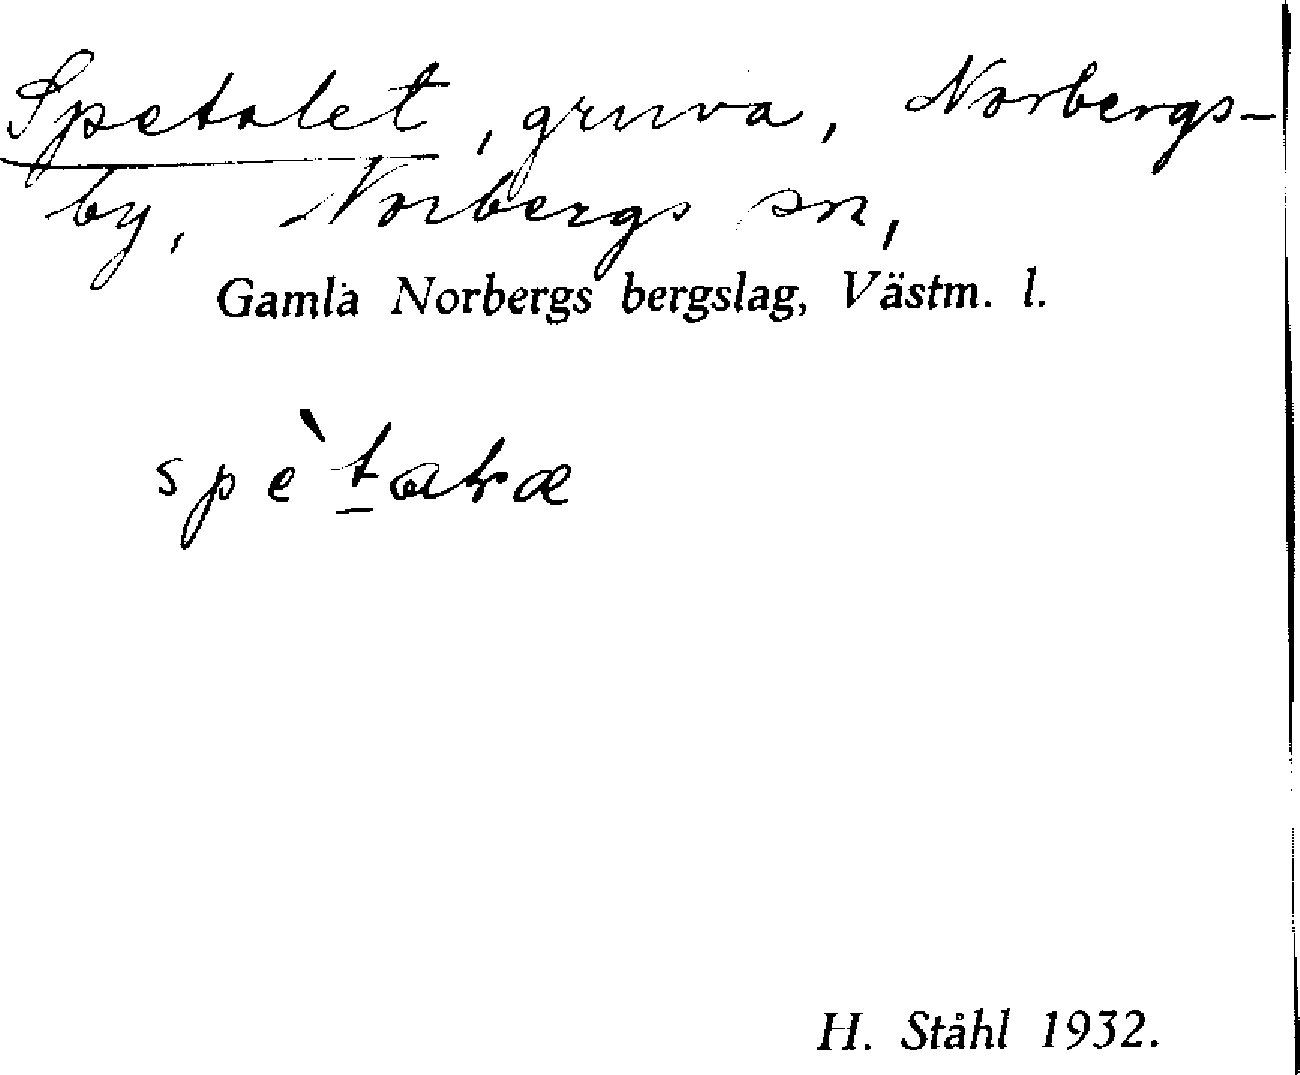 Spetalet, gruva, Norbergs-
by, Norbergs sn,
Gamla Norbergs bergslag, Västm. l.
H. Ståhl 1932.